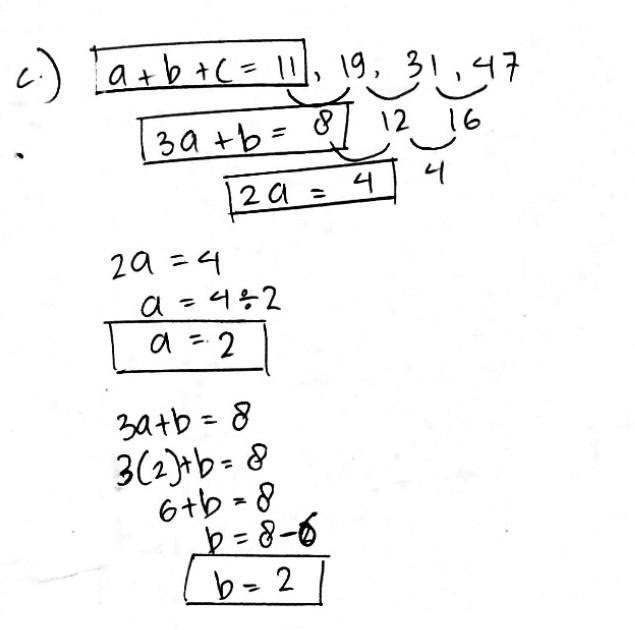 c.) a + b + c = 11, 19, 31, 47
3a + b = 8 12 16
2a = 4 4
2a = 4
a = 4 ÷ 2
a = 2
3a + b = 8
3(2) + b = 8
6 + b = 8
b = 8 - 6
b = 2